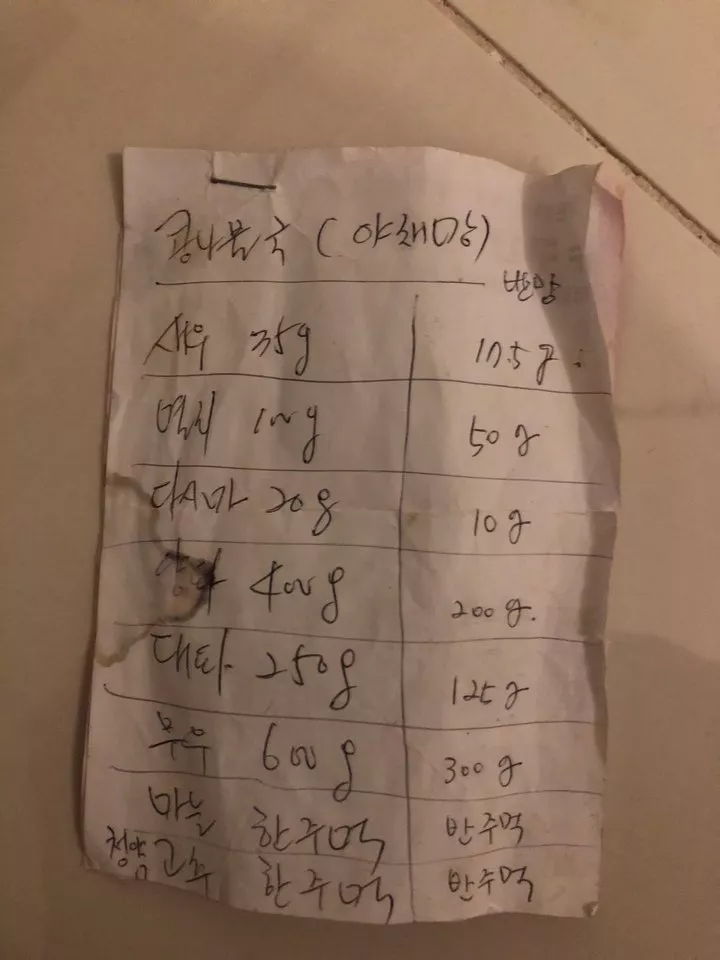 콩나물국 (야채망)
반양
새우 35g 17.5g
멸치 100g 50g
다시마 20g 10g
400g 200g.
대파 250g 125g
무우 600g 300g
마늘 한주먹 반주먹
청양고추 한주먹 반주먹